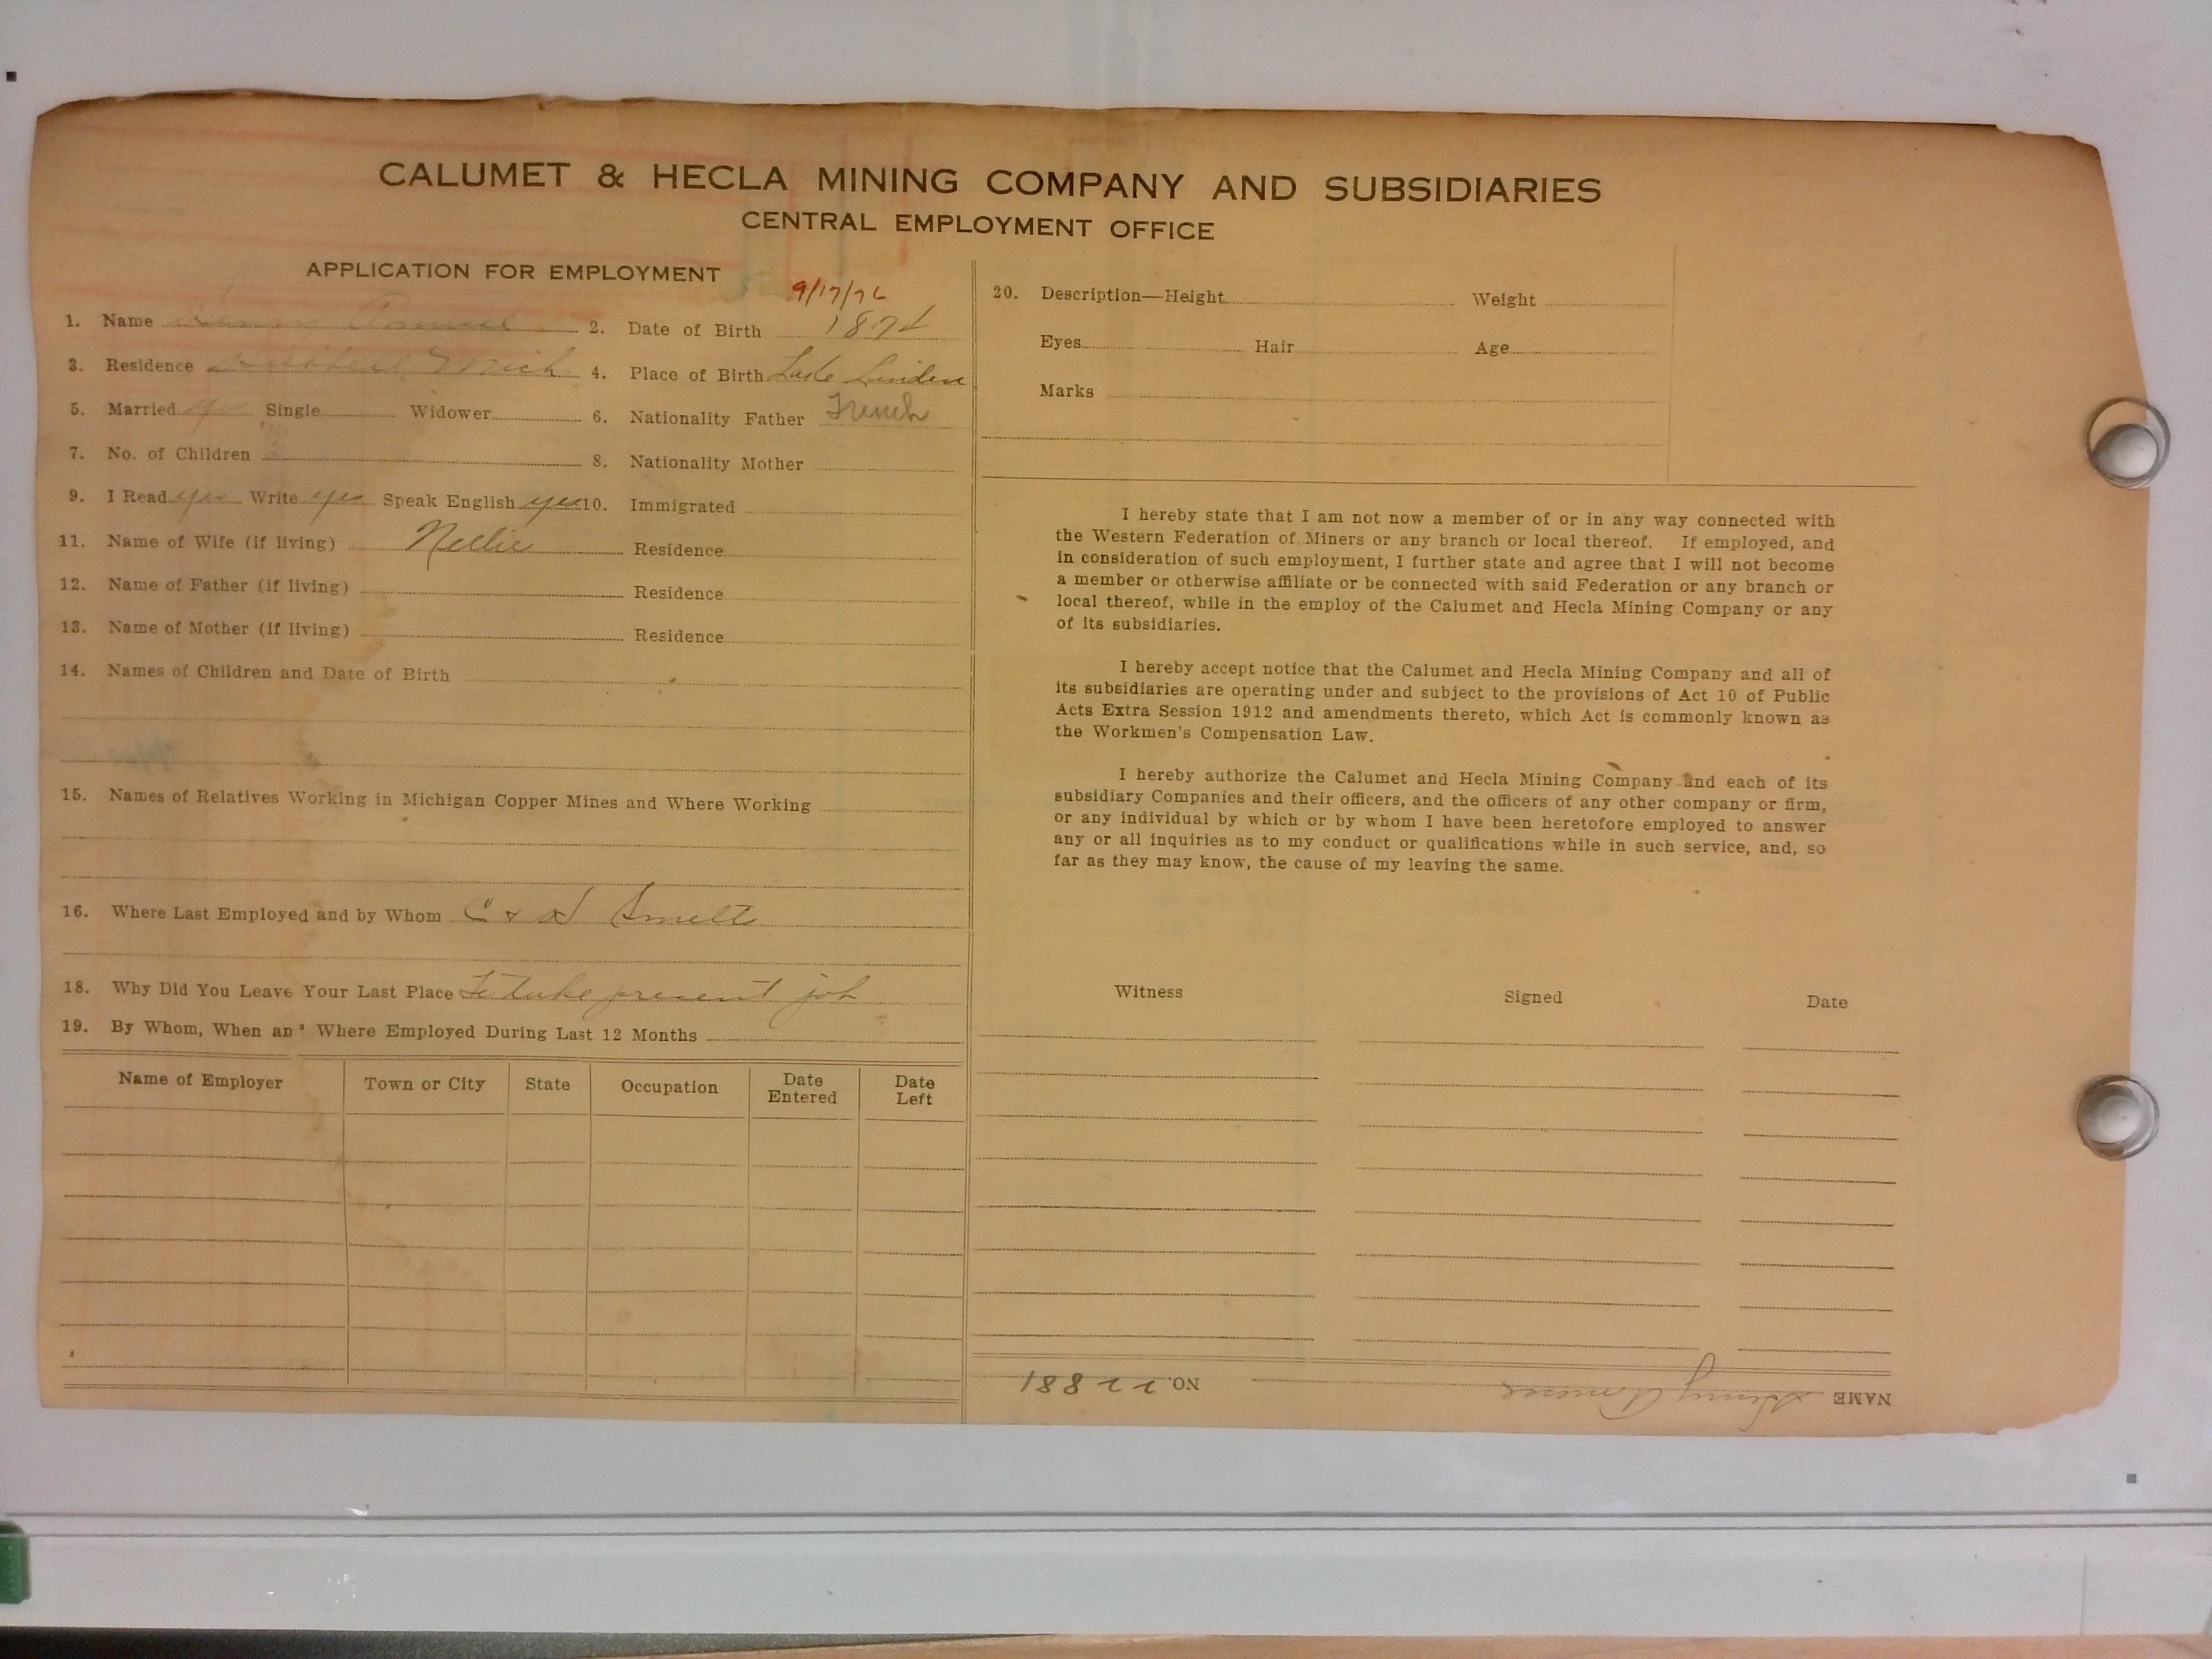 CALUMET & HECLA MINING COMPANY AND SUBSIDIARIES
CENTRAL EMPLOYMENT OFFICE
APPLICATION FOR EMPLOYMENT
1. Name Henry 2. Date of Birth
3. Residence Hubbell, Mich 4. Place of Birth Lake Linden
5. Married yes Single Widower 6. Nationality Father French
7. No. of Children 8. Nationality Mother
9. I Read yes Write yes Speak English yes 10. Immigrated
11. Name of Wife (if living) Nellie Residence
12. Name of Father (if living) Residence
13. Name of Mother (if living) Residence
14. Names of Children and Date of Birth
15. Names of Relatives Working in Michigan Copper Mines and Where Working
16. Where Last Employed and by Whom C & H Smelt
18. Why Did You Leave Your Last Place To take present job
19. By Whom, When an' Where Employed During Last 12 Months
Name of Employer Town or City State Occupation Date Entered Date Left
20. Description—Height Weight
Eyes Hair Age
Marks
I hereby state that I am not now a member of or in any way connected with
the Western Federation of Miners or any branch or local thereof. If employed, and
in consideration of such employment, I further state and agree that I will not become
a member or otherwise affiliate or be connected with said Federation or any branch or
local thereof, while in the employ of the Calumet and Hecla Mining Company or any
of its subsidiaries.
I hereby accept notice that the Calumet and Hecla Mining Company and all of
its subsidiaries are operating under and subject to the provisions of Act 10 of Public
Acts Extra Session 1912 and amendments thereto, which Act is commonly known as
the Workmen's Compensation Law.
I hereby authorize the Calumet and Hecla Mining Company and each of its
subsidiary Companies and their officers, and the officers of any other company or firm,
or any individual by which or by whom I have been heretofore employed to answer
any or all inquiries as to my conduct or qualifications while in such service, and, so
far as they may know, the cause of my leaving the same.
Witness Signed Date
NAME Henry NO. 22881